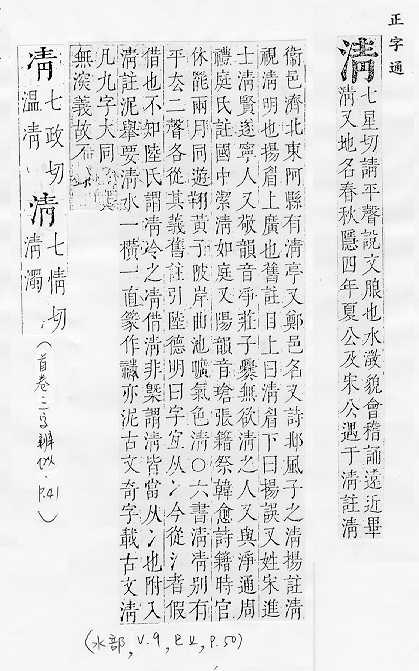 正字通
清
七星切請平聲說文朖也水澂貌會稽誦遠近畢
清又地名春秋隱四年夏公及宋公遇于清註清
衞邑濟北東阿縣有清亭又鄭邑名又詩鄘風子之清揚註清
視清明也揚眉上廣也舊註目上曰清眉下曰揚誤又姓宋進
士清賢遂寧人又敬韻音淨莊子爨無欲清之人又與淨通周
禮庭氏註國中潔清如庭又陽韻音瑲張籍祭韓愈詩籍時官
休罷兩月同遊翔黃子陂岸曲池曠氣色清○六書清凊別有
平去二聲各從其義舊註引陸德明曰字宜从冫今從氵者假
借也不知陸氏謂凊冷之凊借清非槩謂清皆當从冫也附入
清註泥舉要清水一橫一直篆作𤅊亦泥古文奇字載古文清
凡九字大同
無深義故不
凊 七政切
溫凊
清 七情切
清濁
(首卷二字辨似.P.41)
(水部, V.9, 巳上, P.50)